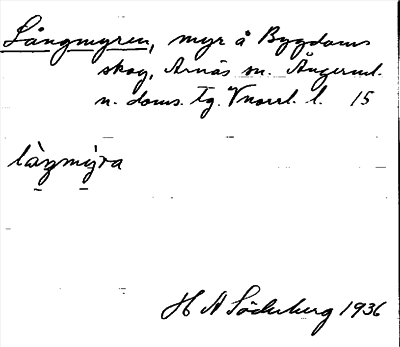 Långmyren, myr å Bygdoms
skog, Arnäs sn. Ångerml.
n. doms. tg. Vnorrl. l. 15
làŋmýra
H A Söderberg 1936